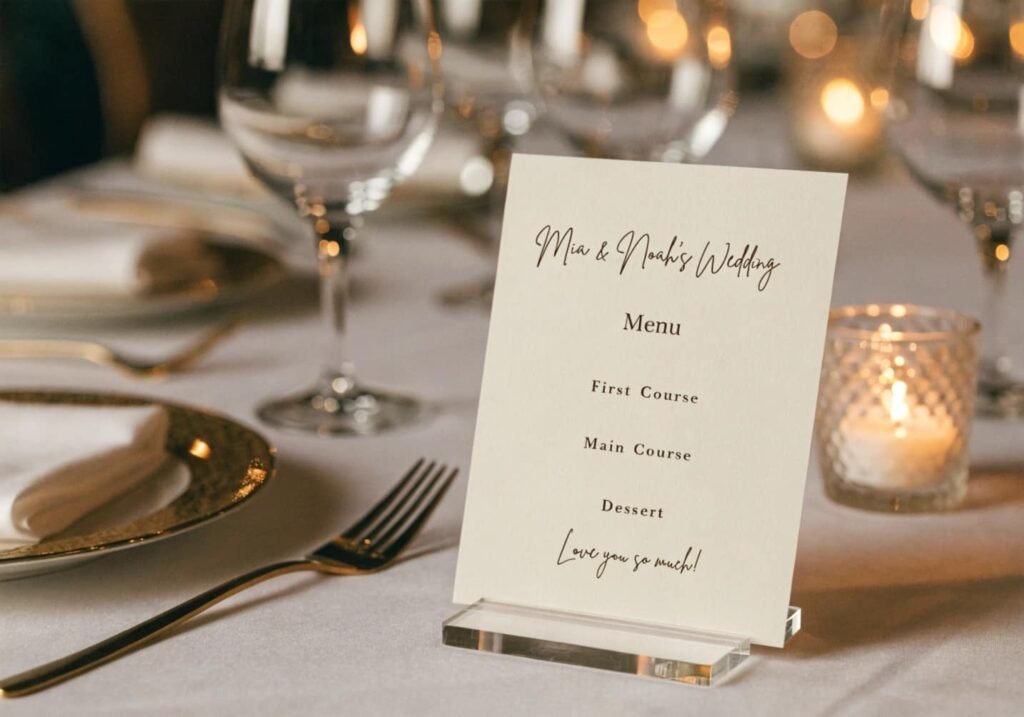 Mia & Noah's Wedding
Menu
First Course
Main Course
Dessert
Love you so much!